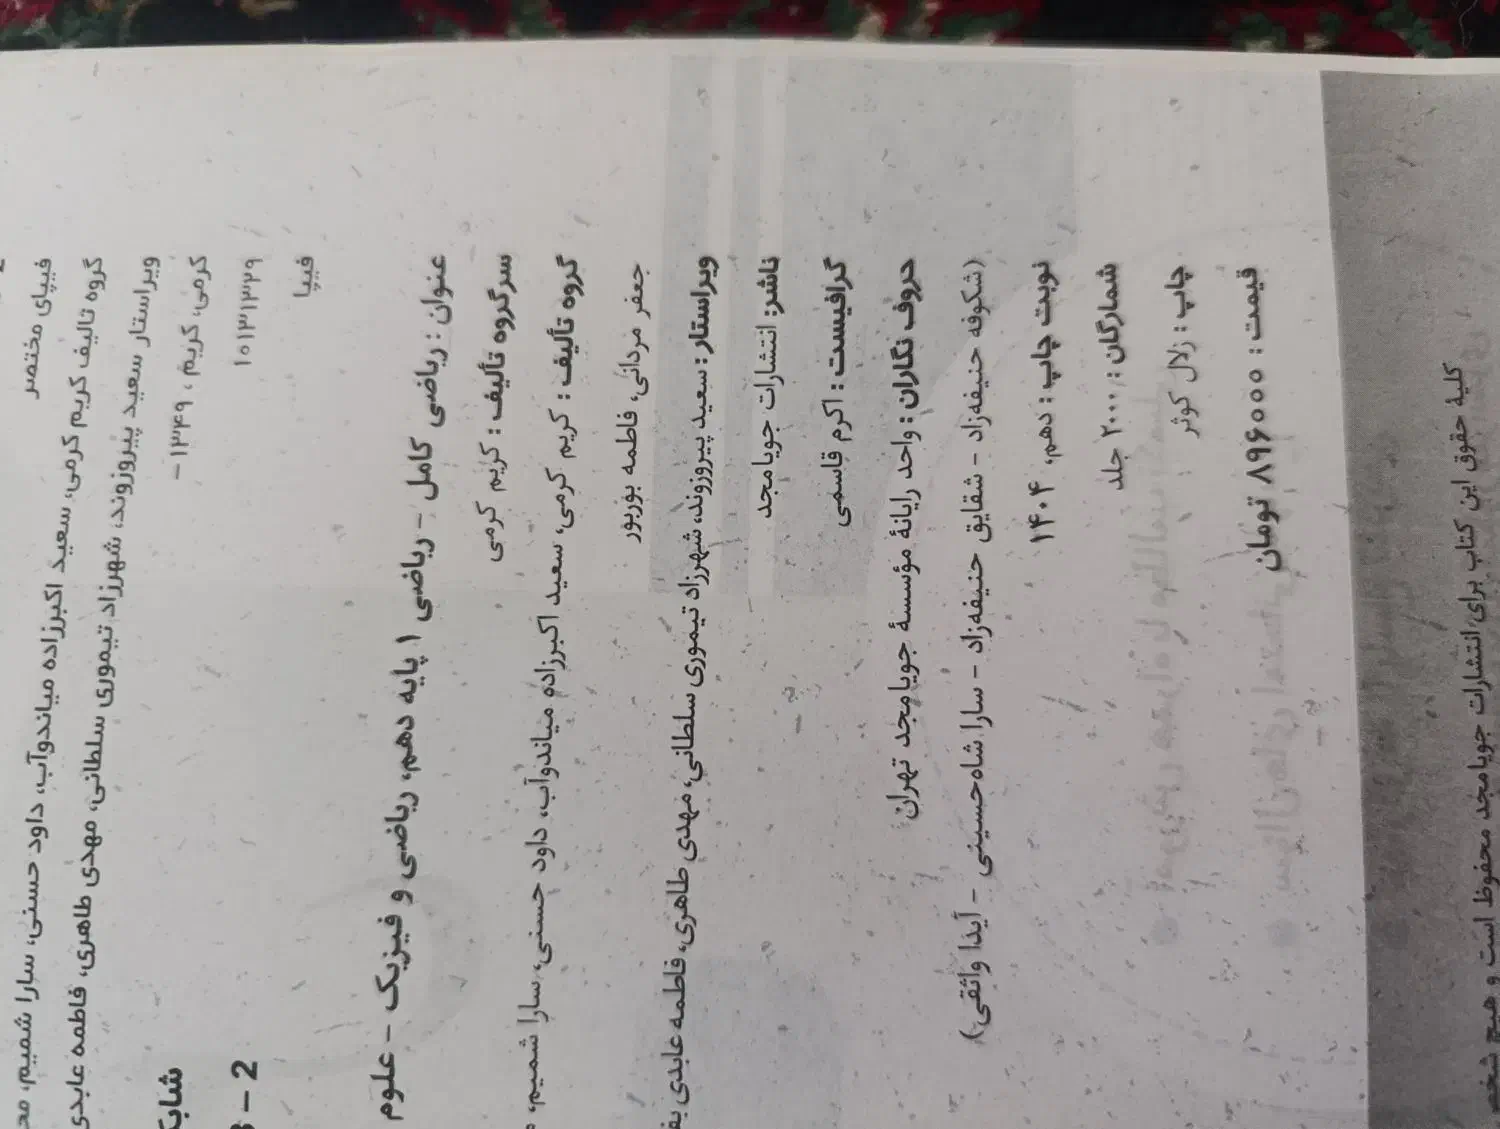 فیپای مختصر
گروه تالیف کریم کرمی، سعید اکبرزاده میاندوآب، داود حسنی، سارا شمیم،
ویراستار سعید پیروزوند، شهرزاد تیموری سلطانی، مهدی طاهری، فاطمه عابدی
کرمی، کریم، ۱۳۴۹ -
۱۰۱۳۱۳۲۹
فیپا
2 -
عنوان : ریاضی کامل - ریاضی ۱ پایه دهم، ریاضی و فیزیک - علوم
سرگروه تألیف : کریم کرمی
گروه تألیف : کریم کرمی، سعید اکبرزاده میاندوآب، داود حسنی، سارا شمیم،
جعفر مردانی، فاطمه بوربور
ویراستار : سعید پیروزوند، شهرزاد تیموری سلطانی، مهدی طاهری، فاطمه عابدی
ناشر: انتشارات جویا مجد
گرافیست : اکرم قاسمی
حروف نگاران : واحد رایانهٔ مؤسسهٔ جویا مجد تهران
(شکوفه حنیفه‌زاد - شقایق حنیفه‌زاد - سارا شاه‌حسینی - آیدا واثقی)
نوبت چاپ : دهم، ۱۴۰۴
شمارگان : ۲۰۰۰ جلد
چاپ : زلال کوثر
قیمت : ۸۹۶۰۰۰ تومان
کلیهٔ حقوق این کتاب برای انتشارات جویا مجد محفوظ است و هیچ شخص